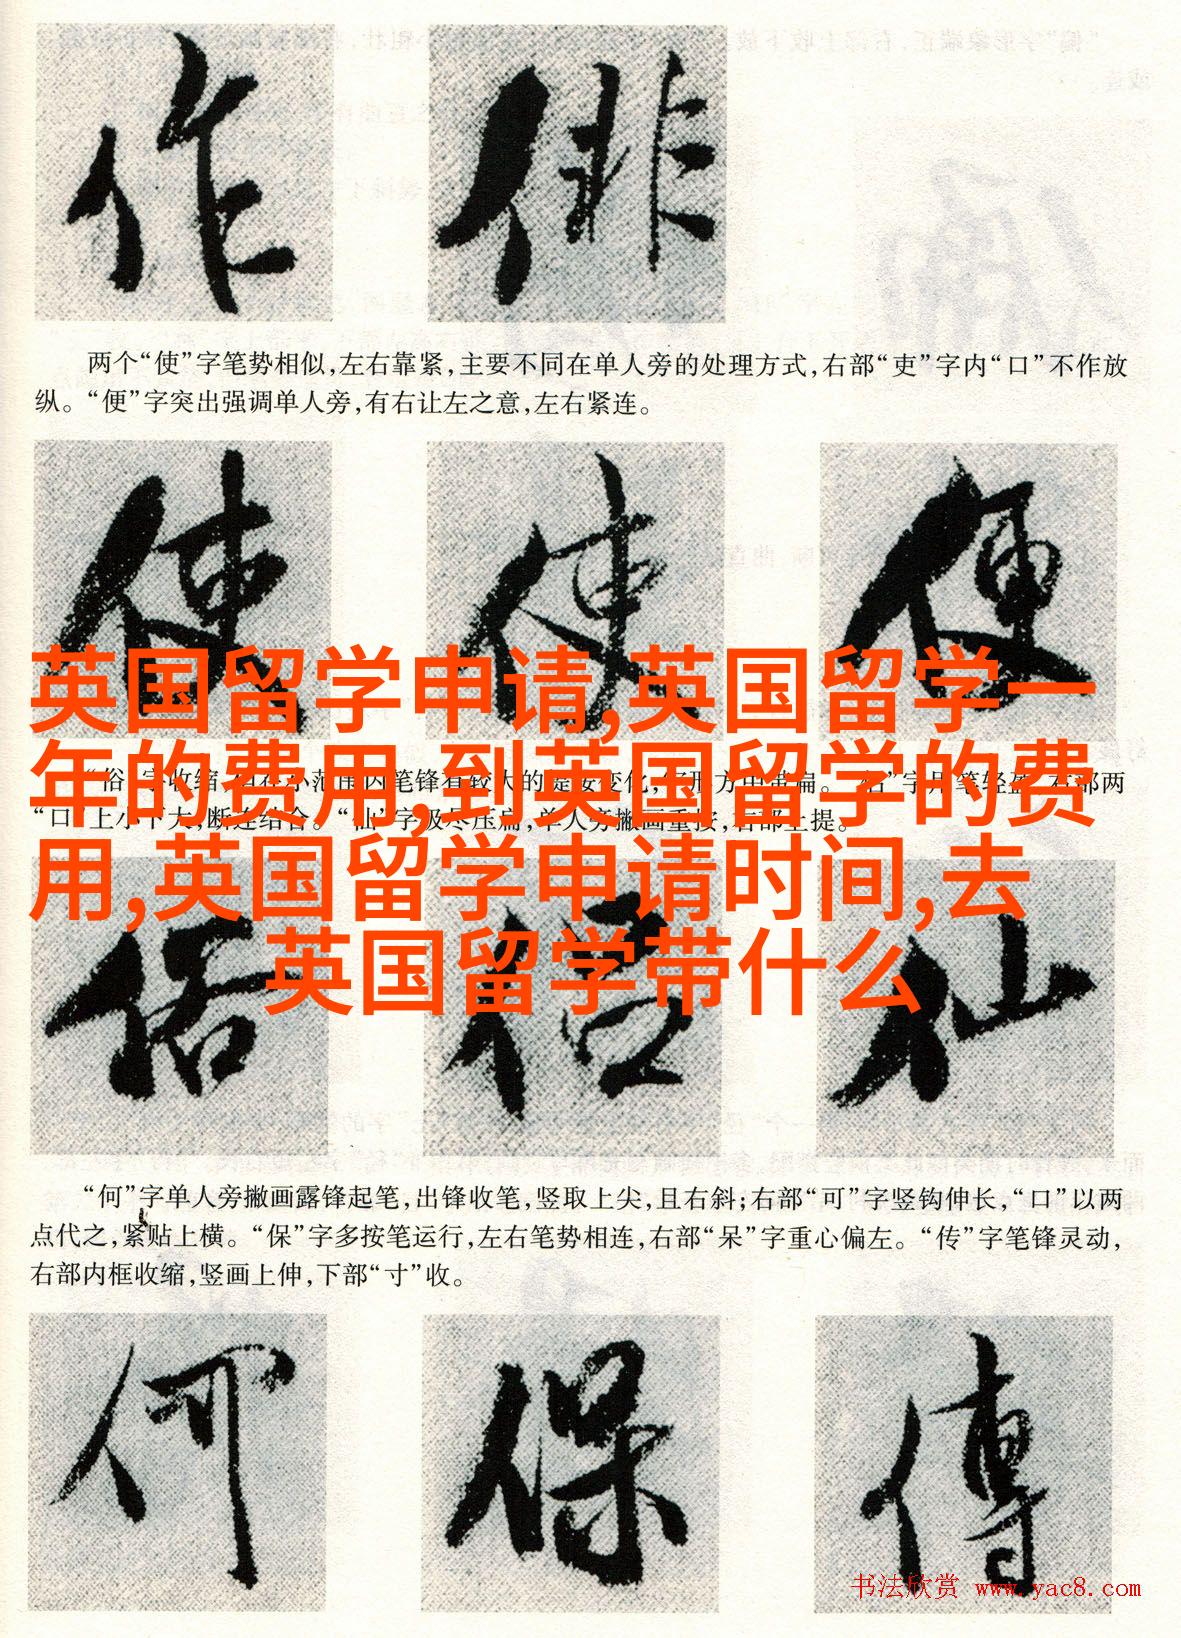 作 俳
两个“使”字笔势相似,左右靠紧,主要不同在单人旁的处理方式,右部“吏”字内“口”不作放
纵。“便”字突出强调单人旁,有右让左之意,左右紧连。
使 使 便
英国留学申请,英国留学一
年的费用,到英国留学的费
用,英国留学申请时间,去
英国留学带什么
“俗”字收缩
“口”上小下大,断连结合。“仙”字极尽压扁,单人旁撇画重按,右部上提。
俗 仙
“何”字单人旁撇画露锋起笔,出锋收笔,竖取上尖,且右斜;右部“可”字竖钩伸长,“口”以两
点代之,紧贴上横。“保”字多按笔运行,左右笔势相连,右部“呆”字重心偏左。“传”字笔锋灵动,
右部内框收缩,竖画上伸,下部“寸”收。
何 保 傳
书法欣赏 www.yac8.com